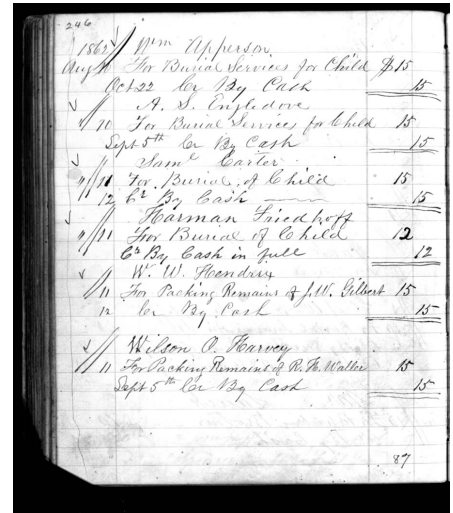 246
1862 Wm Apperson
Aug 10 For Burial Services for Child $15
Oct 22 Cr By Cash 15
A. S. Engledove
" 10 For Burial Services for Child 15
Sept 5th Cr By Cash 15
Saml Carter
" 11 For Burial of Child 15
12 Cr By Cash 15
Harman Friedhoff
" 11 For Burial of Child 12
Cr By Cash in full 12
W. W. Hendrix
11 For Packing Remains of J. W. Gilbert 15
12 Cr By Cash 15
Wilson O. Harvey
11 For Packing Remains of R. H. Waller 15
Sept 5th Cr By Cash 15
87